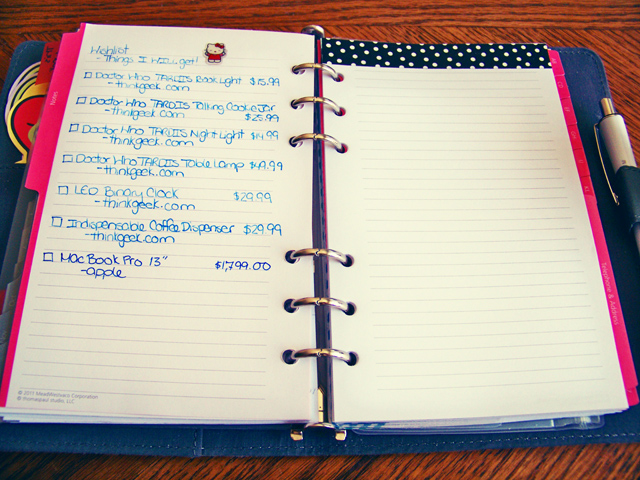 Wishlist
- Things I WILL get!
Doctor Who TARDIS Book Light $15.99
- thinkgeek.com
Doctor Who TARDIS Talking Cookie Jar
- thinkgeek.com $25.99
Doctor Who TARDIS Night Light $14.99
- thinkgeek.com
Doctor Who TARDIS Table Lamp $49.99
- thinkgeek.com
LED Binary Clock $29.99
- thinkgeek.com
Indispensable Coffee Dispenser $29.99
- thinkgeek.com
MacBook Pro 13" $1,799.00
- apple
© 2011 MeadWestvaco Corporation
© thomaspaul studio, LLC
Notes
Telephone & Address